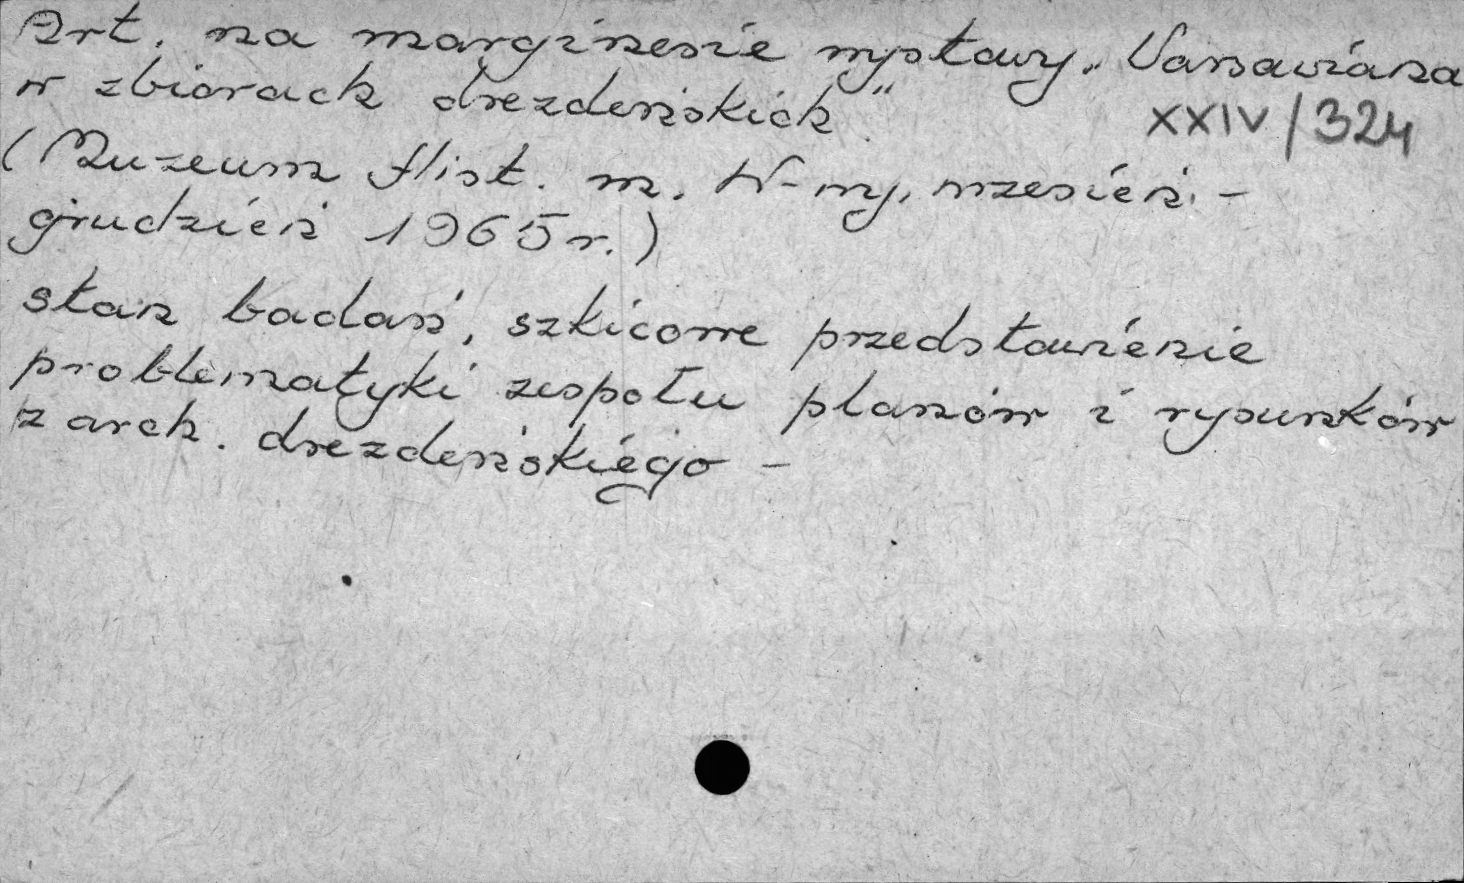 Art. na marginesie wystawy „Varsaviana
w zbiorach drezdeńskich".
XXIV/324
(Muzeum Hist. m. W-wy, wrzesień -
grudzień 1965 r.)
stan badań, szkicowe przedstawienie
problematyki zespołu planów i rysunków
z arch. drezdeńskiego -